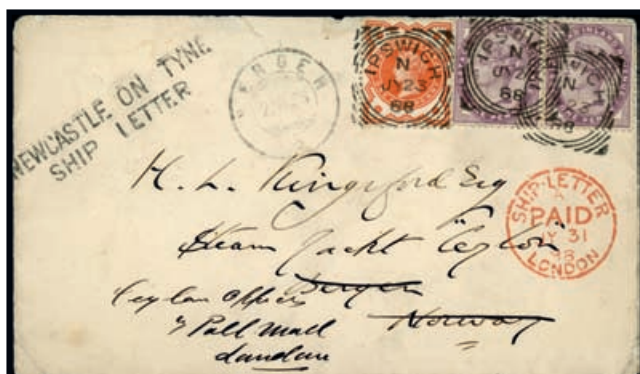 NEWCASTLE ON TYNE
SHIP LETTER
BERGEN
IPSWICH
N
JY 23
88
IPSWICH
N
JY 2
88
IPSWICH
N
23
88
H. L. Kingsford Esq
Steam Yacht "Ceylon"
Bergen
Norway
Ceylon Office
7 Pall Mall
London
SHIP-LETTER
A
PAID
JY 31
88
LONDON